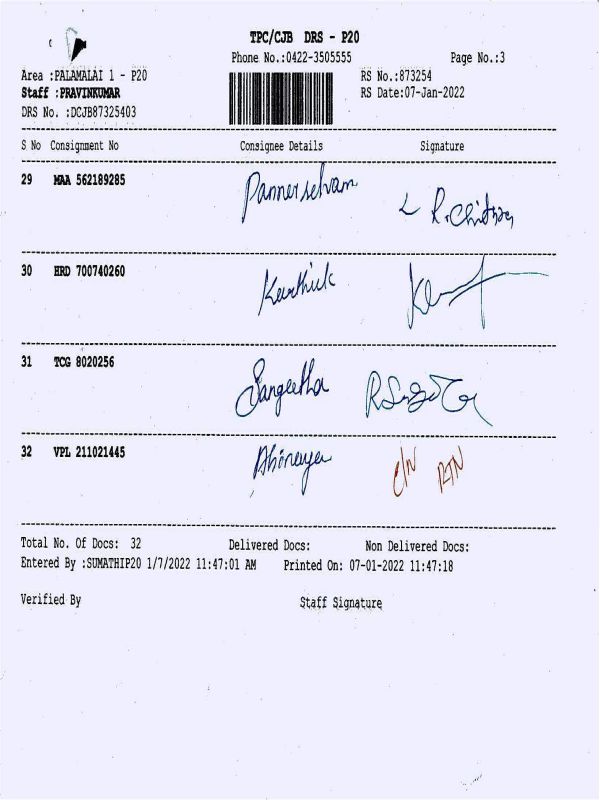 TPC/CJB DRS - P20
Phone No.:0422-3505555 Page No.:3
Area :PALAMALAI 1 - P20 RS No.:873254
Staff :PRAVINKUMAR RS Date:07-Jan-2022
DRS No. :DCJB87325403
S No Consignment No Consignee Details Signature
29 MAA 562189285 Pannerselvam R.Chitra
30 HRD 700740260 Karthik
31 TCG 8020256 Sangeetha
32 VPL 211021445 C/N RTN
Total No. Of Docs: 32 Delivered Docs: Non Delivered Docs:
Entered By :SUMATHIP20 1/7/2022 11:47:01 AM Printed On: 07-01-2022 11:47:18
Verified By Staff Signature